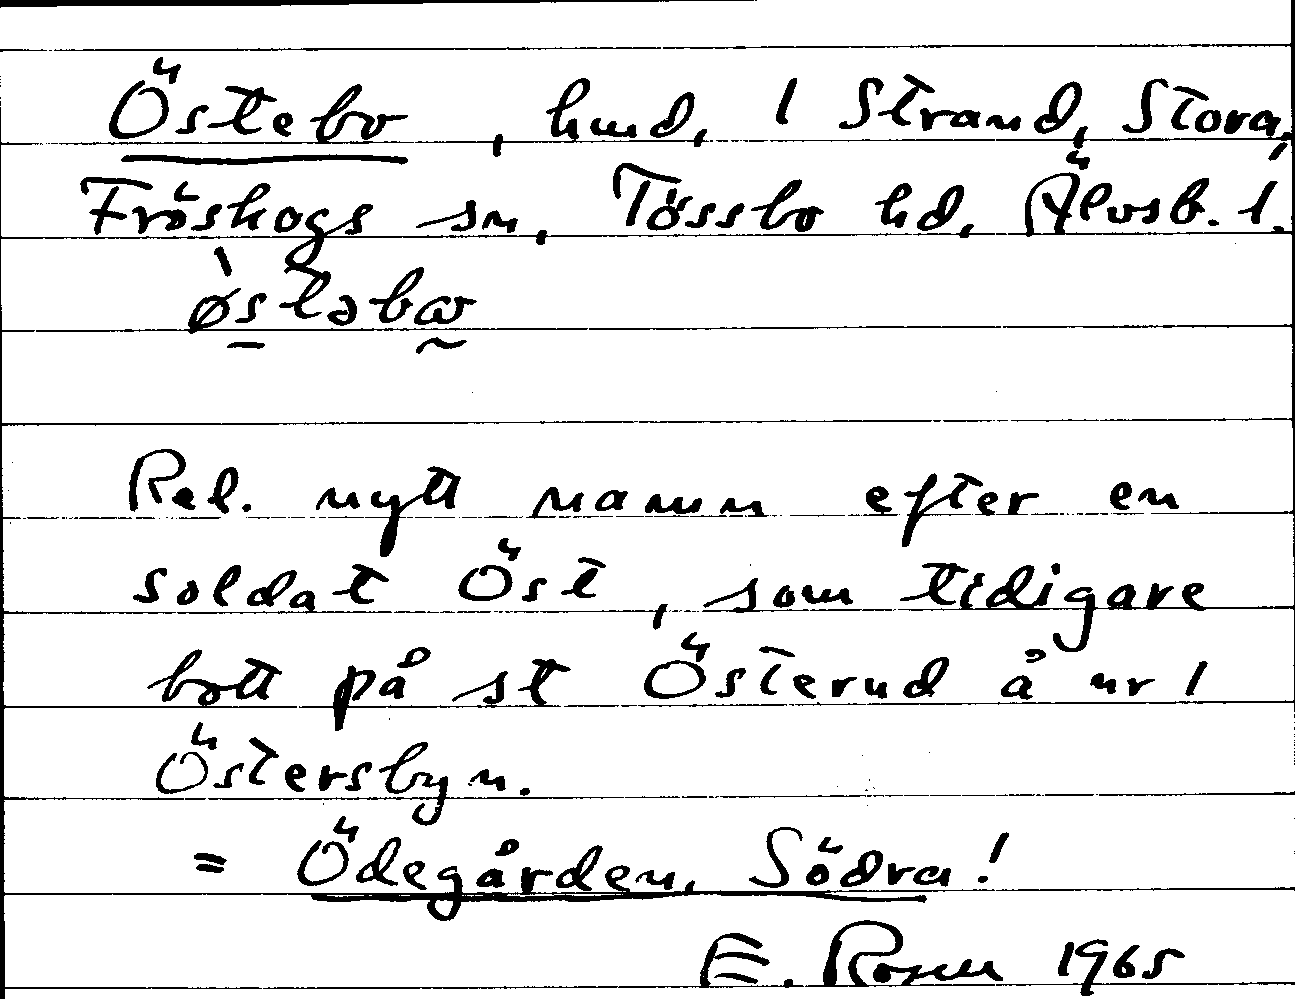 Östebo, hmd, 1 Strand, Stora,
Fröskogs sn, Tössbo hd, Älvsb. l.
Rel. nytt namn efter en
soldat Öst, som tidigare
bott på st Österud å nr 1
Östersbyn.
= Ödegården, Södra!
E. Rosen 1965